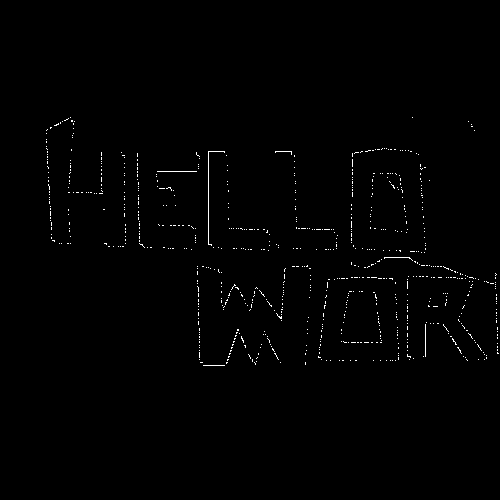 HELLO
WOR